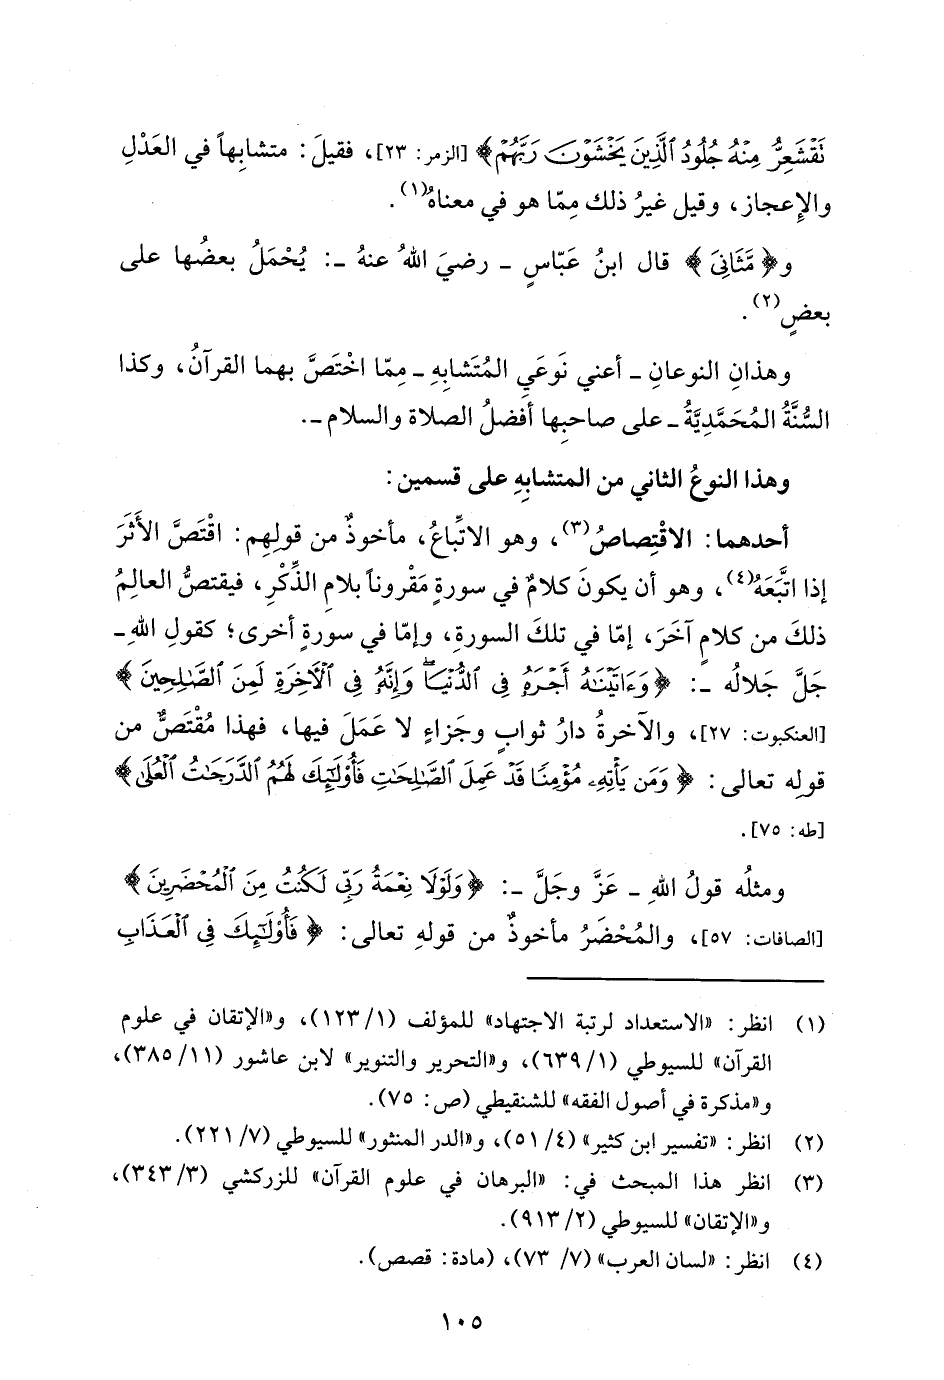 تَقْشَعِرُّ مِنْهُ جُلُودُ ٱلَّذِينَ يَخْشَوْنَ رَبَّهُمْ﴾ [الزمر: ٢٣]، فقيلَ: متشابهاً في العَدْلِ
والإِعجاز، وقيل غيرُ ذلك مِمّا هو في معناهُ(١).
و﴿مَّثَانِىَ﴾ قال ابنُ عَبّاسٍ ـ رضيَ اللهُ عنهُ ـ: يُحْمَلُ بعضُها على
بعضٍ(٢).
وهذانِ النوعانِ ـ أعني نَوعَيِ المُتَشابِهِ ـ مِمّا اخْتَصَّ بهما القرآنُ، وكذا
السُّنَّةُ المُحَمَّدِيَّةُ ـ على صاحبِها أفضلُ الصلاة والسلام ـ.
وهذا النوعُ الثاني من المتشابِهِ على قسمين:
أحدهما: الاقْتِصاصُ(٣)، وهو الاتِّباعُ، مأخوذٌ من قولِهِم: اقْتَصَّ الأَثَرَ
إذا اتَّبَعَهُ(٤)، وهو أن يكونَ كلامٌ في سورةٍ مَقْروناً بلامِ الذِّكْرِ، فيقتصُّ العالِمُ
ذلكَ من كلامٍ آخَرَ، إمّا في تلكَ السورةِ، وإمّا في سورةٍ أخرى؛ كقولِ اللهِ ـ
جَلَّ جَلالُه ـ: ﴿وَءَاتَيْنَٰهُ أَجْرَهُۥ فِى ٱلدُّنْيَا ۖ وَإِنَّهُۥ فِى ٱلْأَخِرَةِ لَمِنَ ٱلصَّٰلِحِينَ﴾
[العنكبوت: ٢٧]، والآخرةُ دارُ ثوابٍ وجَزاءٍ لا عَمَلَ فيها، فهذا مُقْتَصٌّ من
قولِه تعالى: ﴿وَمَن يَأْتِهِۦ مُؤْمِنًا قَدْ عَمِلَ ٱلصَّٰلِحَٰتِ فَأُو۟لَٰٓئِكَ لَهُمُ ٱلدَّرَجَٰتُ ٱلْعُلَىٰ﴾
[طه: ٧٥].
ومثلُه قولُ اللهِ ـ عَزَّ وجَلَّ ـ: ﴿وَلَوْلَا نِعْمَةُ رَبِّى لَكُنتُ مِنَ ٱلْمُحْضَرِينَ﴾
[الصافات: ٥٧]، والمُحْضَرُ مأخوذٌ من قولهِ تعالى: ﴿فَأُو۟لَٰٓئِكَ فِى ٱلْعَذَابِ
(١) انظر: «الاستعداد لرتبة الاجتهاد» للمؤلف (١/ ١٢٣)، و«الإتقان في علوم
القرآن» للسيوطي (١/ ٦٣٩)، و«التحرير والتنوير» لابن عاشور (١١/ ٣٨٥)،
و«مذكرة في أصول الفقه» للشنقيطي (ص: ٧٥).
(٢) انظر: «تفسير ابن كثير» (٤/ ٥١)، و«الدر المنثور» للسيوطي (٧/ ٢٢١).
(٣) انظر هذا المبحث في: «البرهان في علوم القرآن» للزركشي (٣/ ٣٤٣)،
و«الإتقان» للسيوطي (٢/ ٩١٣).
(٤) انظر: «لسان العرب» (٧/ ٧٣)، (مادة: قصص).
١٠٥